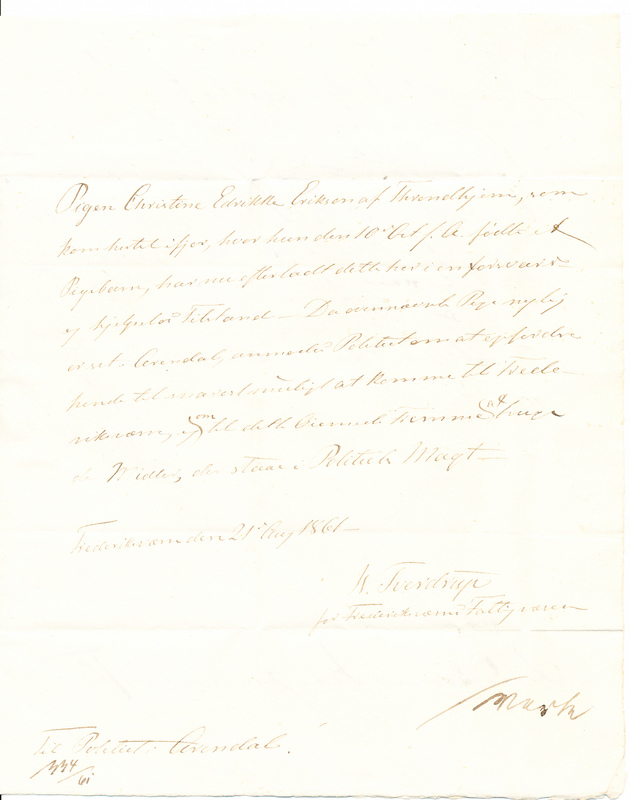 Pigen Christine Edrikke Erikson af Throndhjem, som
kom hertil ifjor, hvor hun den 10de Oct f. A. fødte et
Pigebarn, har nu efterladt dette her i en forsvars-
og hjelpeløs Tilstand — Da ovennævnte Pige nylig
er set i Arendal, anmodes Politiet om at opfordre
hende til snarest muligt at komme til Frede-
riksværn, og om til dette Øiemeds Fremme at bruge
de Midler, der staar i Politiets Magt —
Frederiksværn den 21de Aug 1861 —
for Frederiksværns Fattigvæsen
Til Politiet i Arendal.
334/61